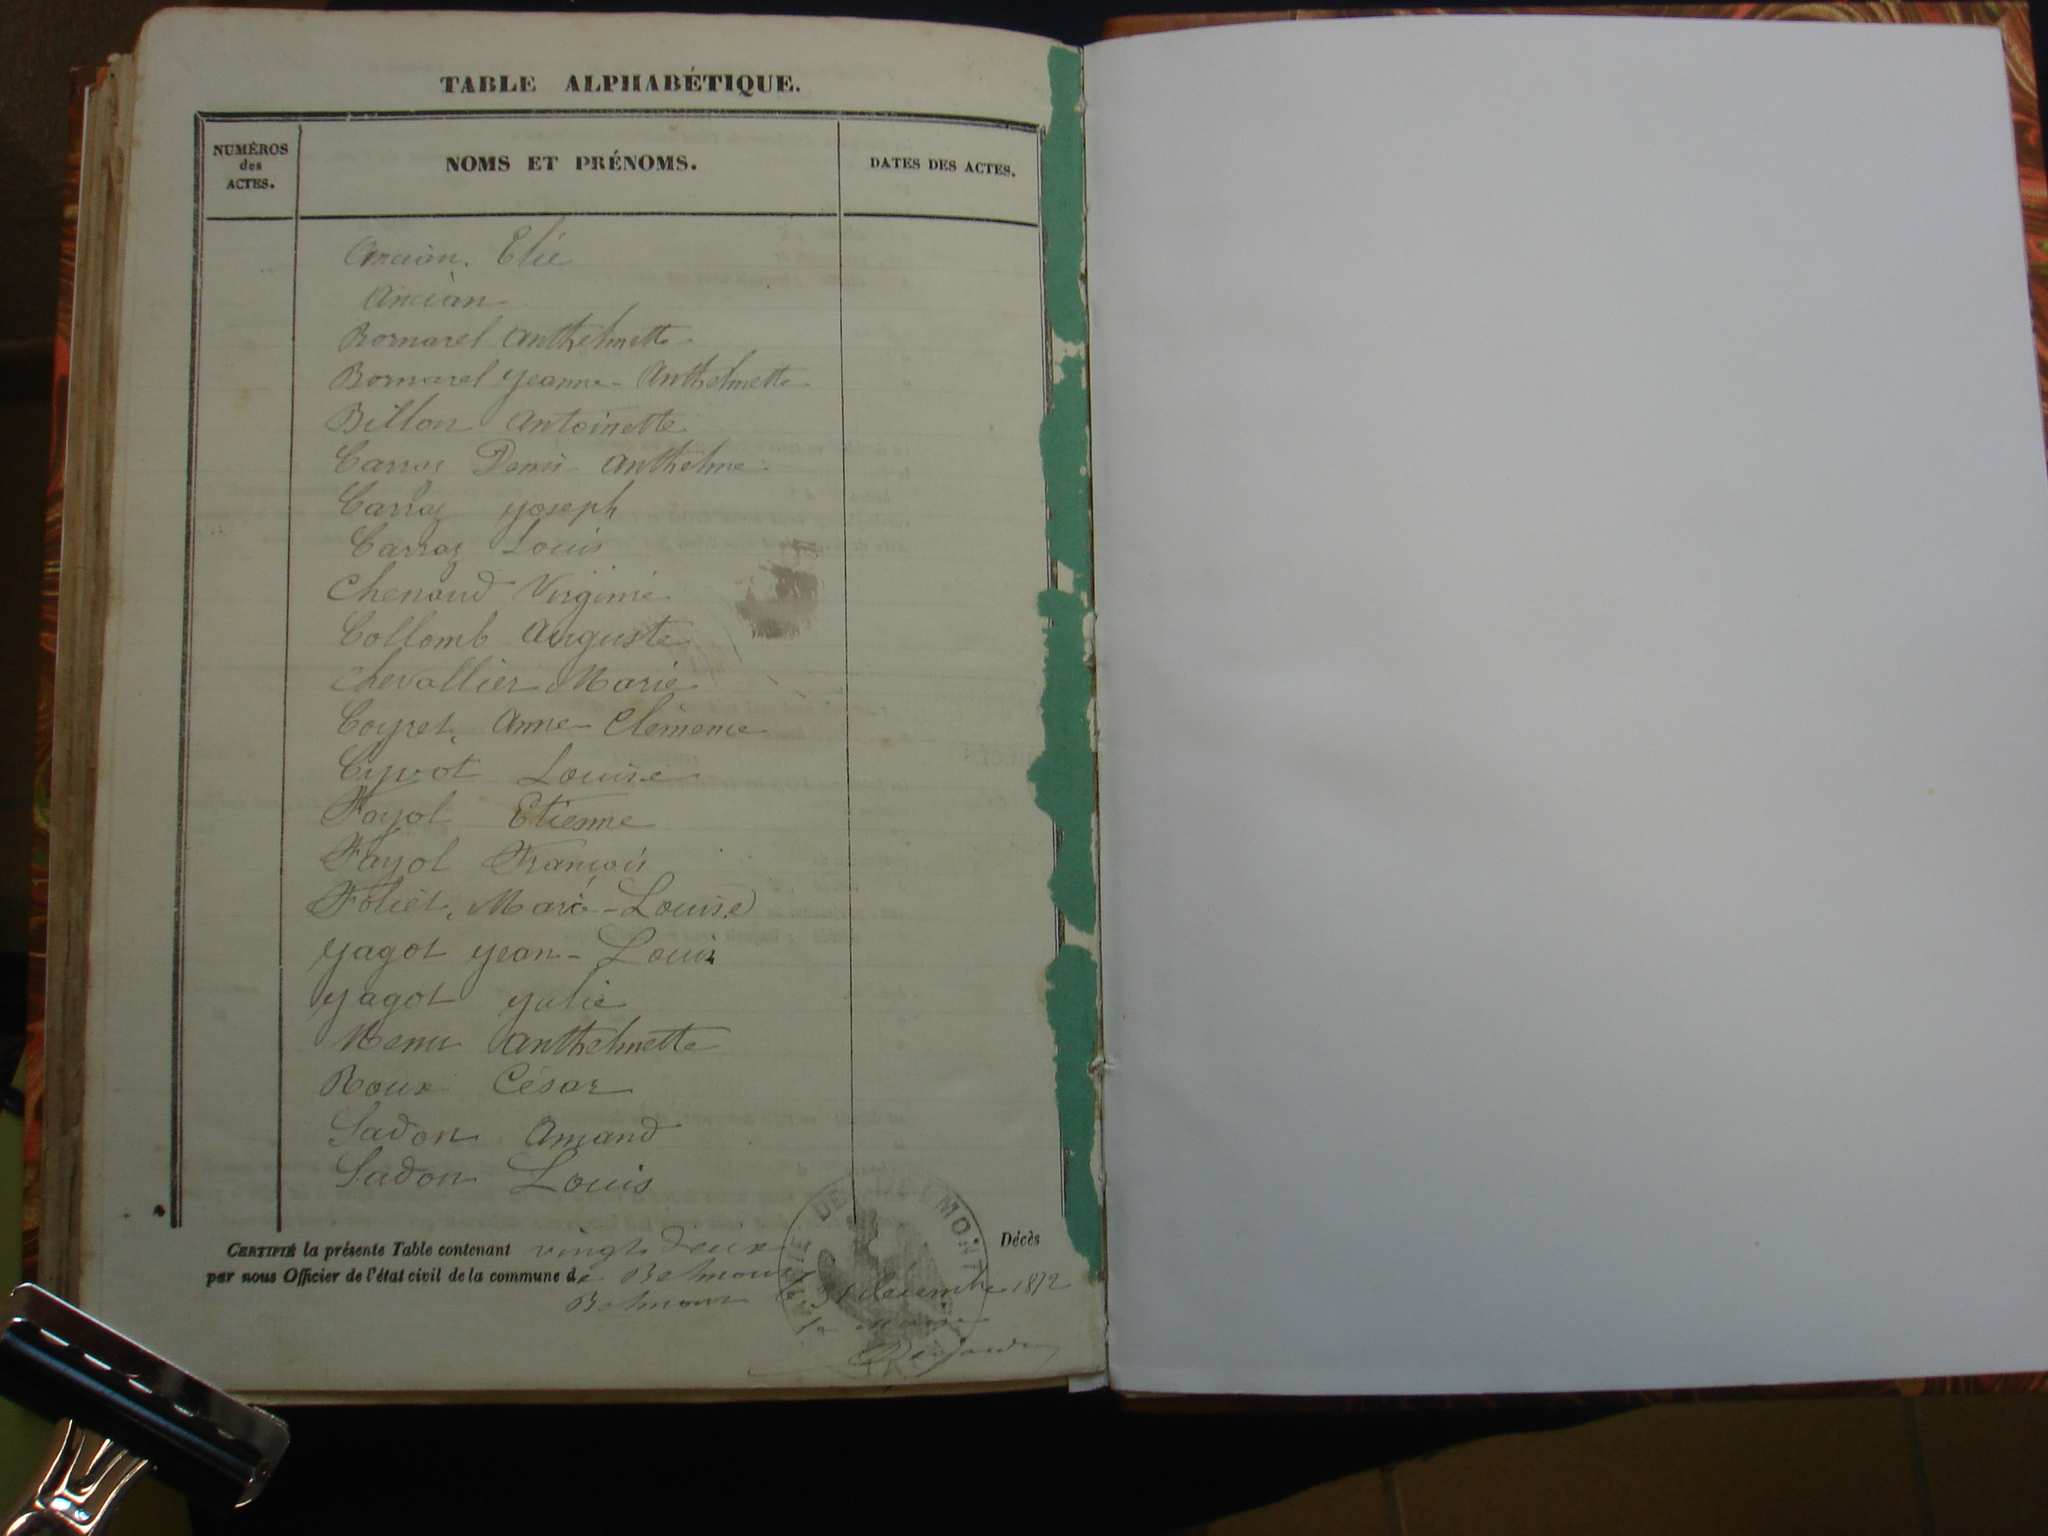 TABLE ALPHABÉTIQUE.
NUMÉROS
des
ACTES.
NOMS ET PRÉNOMS.
DATES DES ACTES.
Ancian. Elie
Ancian
Bornarel Anthelmette
Bornarel Jeanne-Anthelmette
Billon Antoinette
Carraz Denis-Anthelme
Carraz Joseph
Carraz Louis
Chenaud Virginie
Collomb Auguste
Chevallier Marie
Coyret Anne-Clémence
Cyvot Louise
Fayol Etienne
Fayol François
Foliet, Marie-Louise
Jagot Jean-Louis
Jagot Julie
Anthelmette
Roux César
Sadon Amand
Sadon Louis
CERTIFIÉ la présente Table contenant vingt deux Décès
par nous Officier de l'état civil de la commune de Belmont
Belmont le 31 décembre 1872
le maire